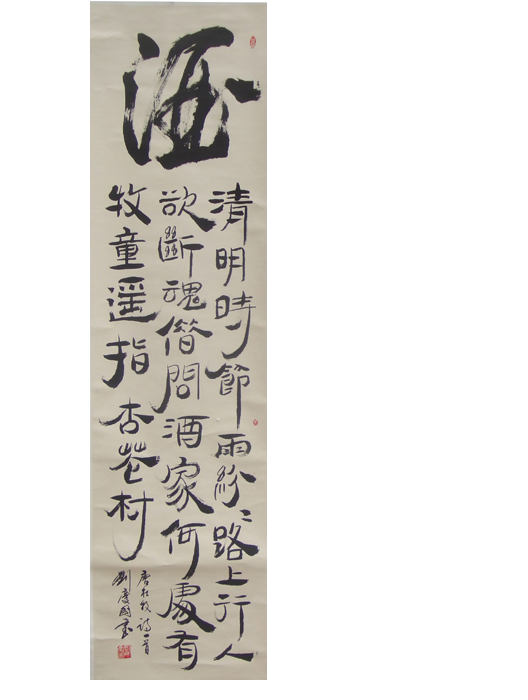 酒
清明時節雨紛〻路上行人
欲斷魂借問酒家何處有
牧童遥指杏花村
唐杜牧詩一首
劉慶國書